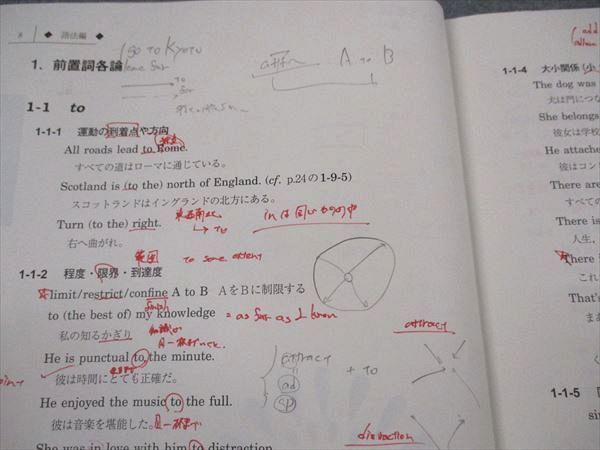 8 ◆ 語法編 ◆
1. 前置詞各論
go to Kyoto
A to B
to
for
1-1 to
1-1-1 運動の到着点や方向
All roads lead to Rome.
すべての道はローマに通じている。
Scotland is (to the) north of England. (cf. p.24の1-9-5)
スコットランドはイングランドの北方にある。
Turn (to the) right.
→ to
右へ曲がれ。
範囲 to some extent
1-1-2 程度・限界・到達度
limit/restrict/confine A to B AをBに制限する
to (the best of) my knowledge = as far as I know
私の知るかぎり
He is punctual to the minute.
彼は時間にとても正確だ。
He enjoyed the music to the full.
彼は音楽を堪能した。
She was in love with him to distraction.
attract
ad
+ to
attract
distraction
1-1-4 大小関係
The dog was
犬は門につな
She belongs
彼女は学校
He attache
彼はコンピ
There are
すべての
There is
人生,
There i
これ
That's
まあ
1-1-5
sin